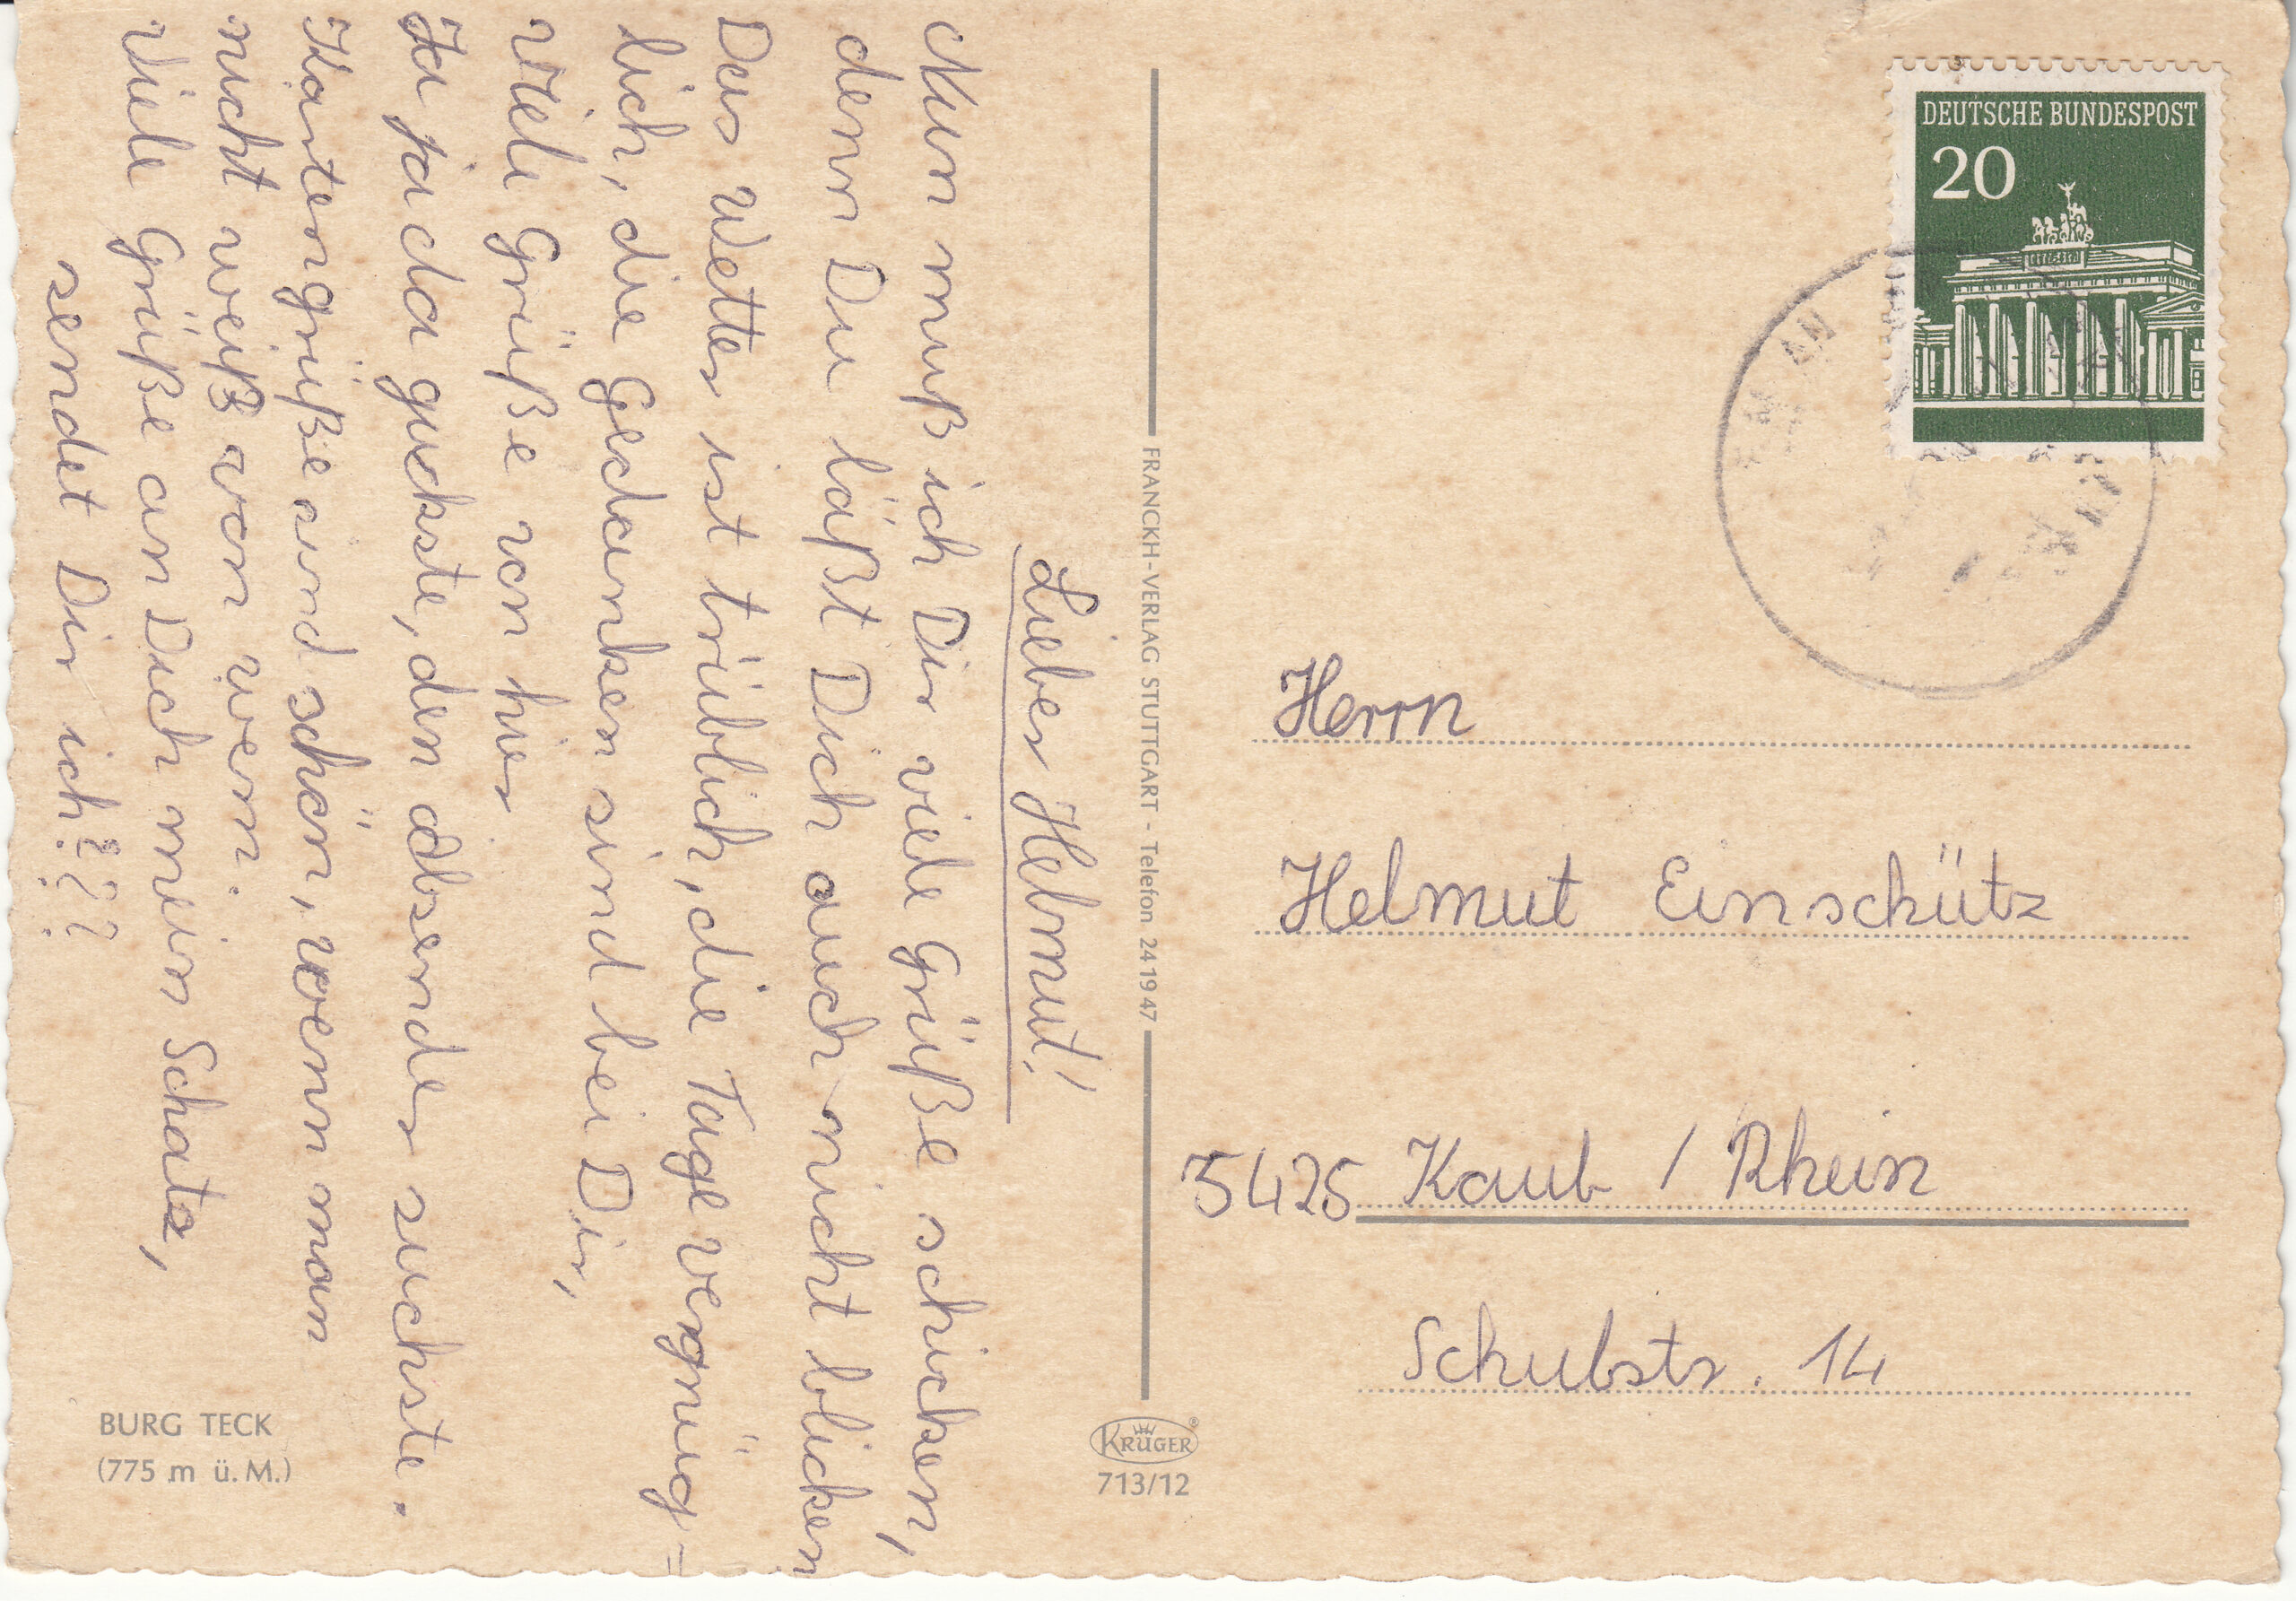 Lieber Helmut!
Nun muß ich Dir viele Grüße schicken,
denn Du läßt Dich auch nicht blicken
Das Wetter ist trüblich, die Tage vergnüg=
lich, die Gedanken sind bei Dir,
Viele Grüße von hier
Ja ja da guckste, den absender suchste.
Kartengrüße sind schön, wenn man
nicht weiß von wem.
Viele Grüße an Dich mein Schatz,
sendet Dir ich???
BURG TECK
(775 m ü. M.)
FRANCKH-VERLAG STUTTGART - Telefon 24 19 47
KRÜGER
713/12
DEUTSCHE BUNDESPOST
20
Herrn
Helmut Einschütz
5425 Kaub / Rhein
Schulstr. 14